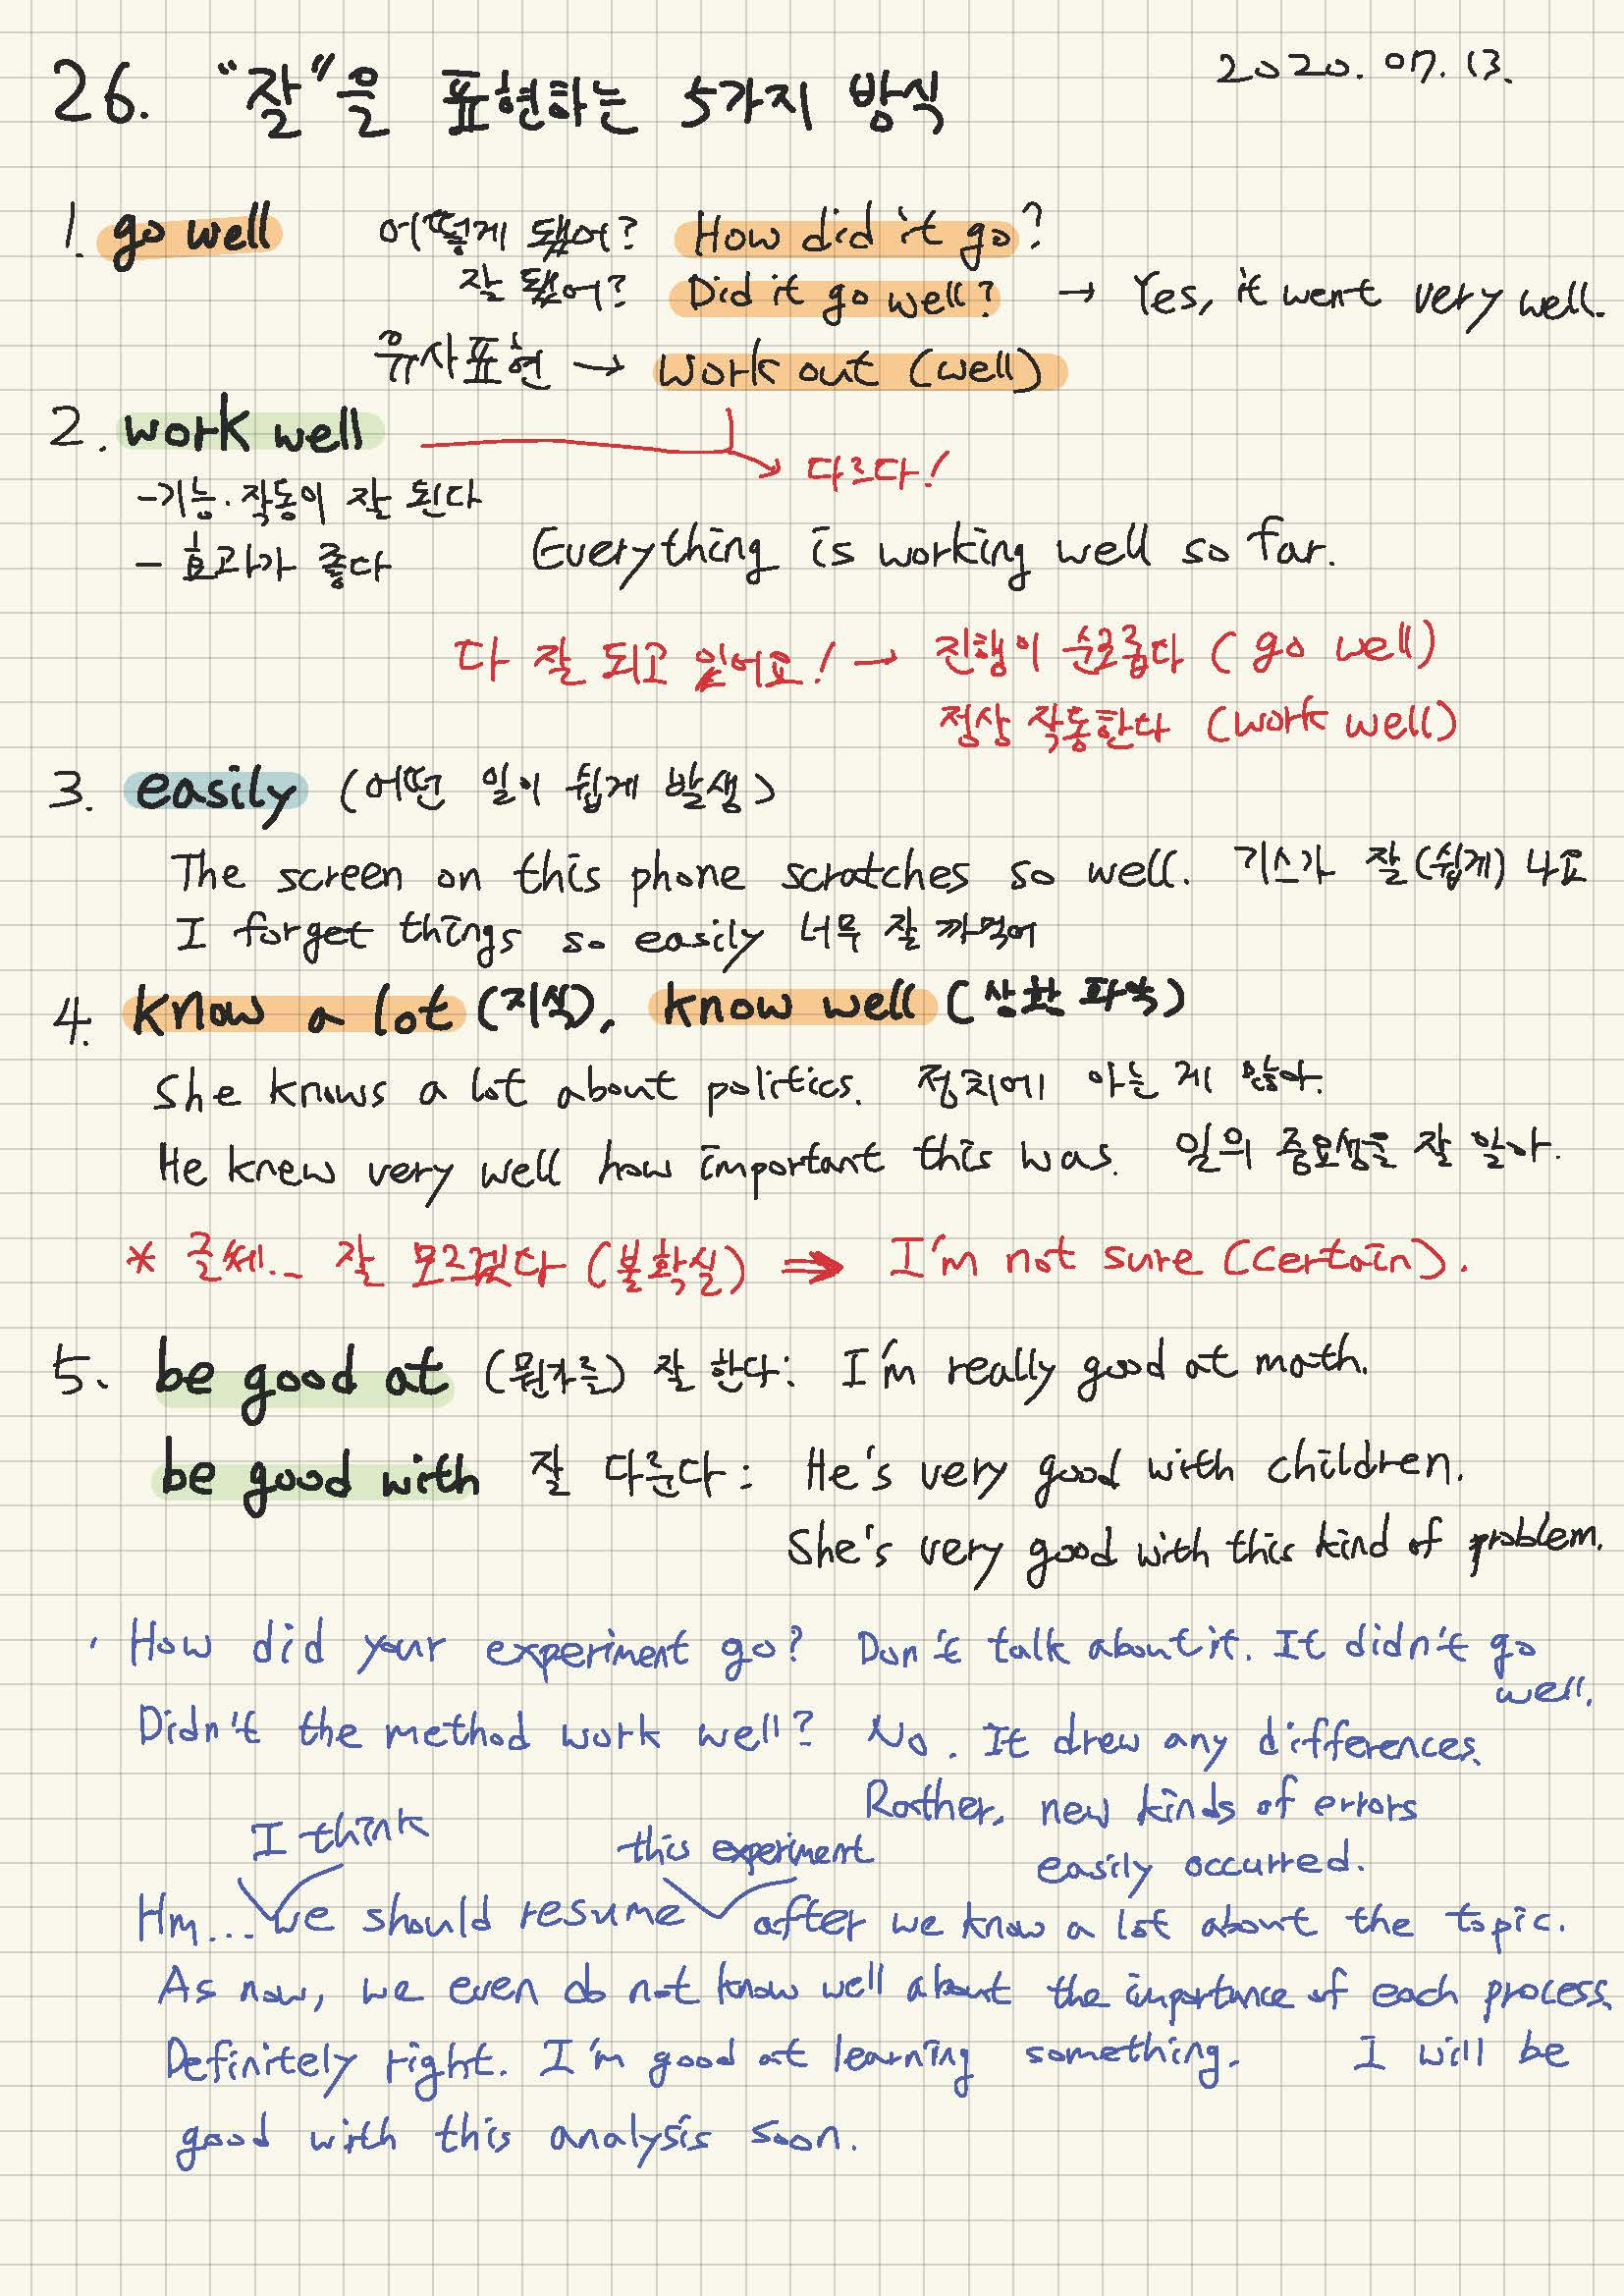 26. "잘"을 표현하는 5가지 방식
2020. 07. 13.
1. go well 어떻게 됐어? How did it go?
잘 됐어? Did it go well? → Yes, it went very well.
유사표현 → work out (well)
2. work well
다르다!
-기능·작동이 잘 된다
- 효과가 좋다 Everything is working well so far.
다 잘 되고 있어요! → 진행이 순조롭다 (go well)
정상 작동한다 (work well)
3. easily (어떤 일이 쉽게 발생)
The screen on this phone scratches so well. 기스가 잘(쉽게) 나요
I forget things so easily 너무 잘 까먹어
4. know a lot (지식), know well (상황 파악)
She knows a lot about politics. 정치에 아는 게 많아.
He knew very well how important this was. 일의 중요성을 잘 알아.
* 글쎄.. 잘 모르겠다 (불확실) ⇒ I'm not sure (certain).
5. be good at (뭔가를) 잘 한다: I'm really good at math.
be good with 잘 다룬다: He's very good with children.
She's very good with this kind of problem.
· How did your experiment go? Don't talk about it. It didn't go
well.
Didn't the method work well? No. It drew any differences.
Rather, new kinds of errors
easily occurred.
I think this experiment
Hm... we should resume after we know a lot about the topic.
As now, we even do not know well about the importance of each process.
Definitely right. I'm good at learning something. I will be
good with this analysis soon.